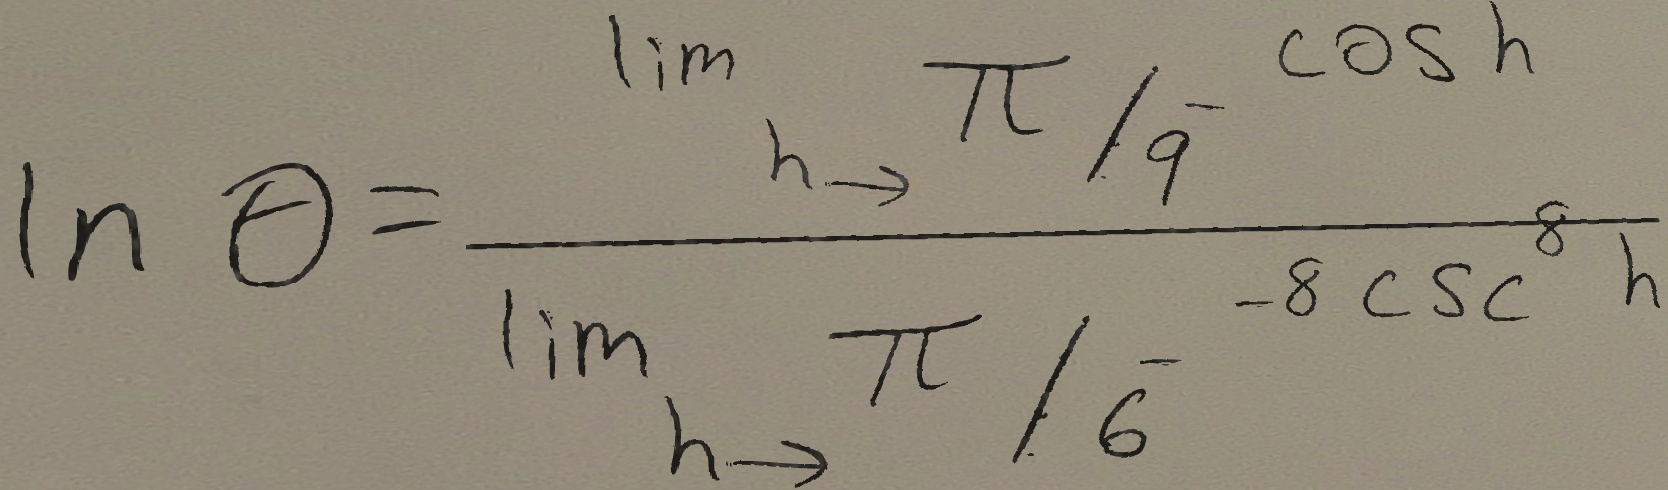 ln θ = \frac{\lim_{h \to \pi/9^-} \cos h}{\lim_{h \to \pi/6^-} -8 \csc^8 h}